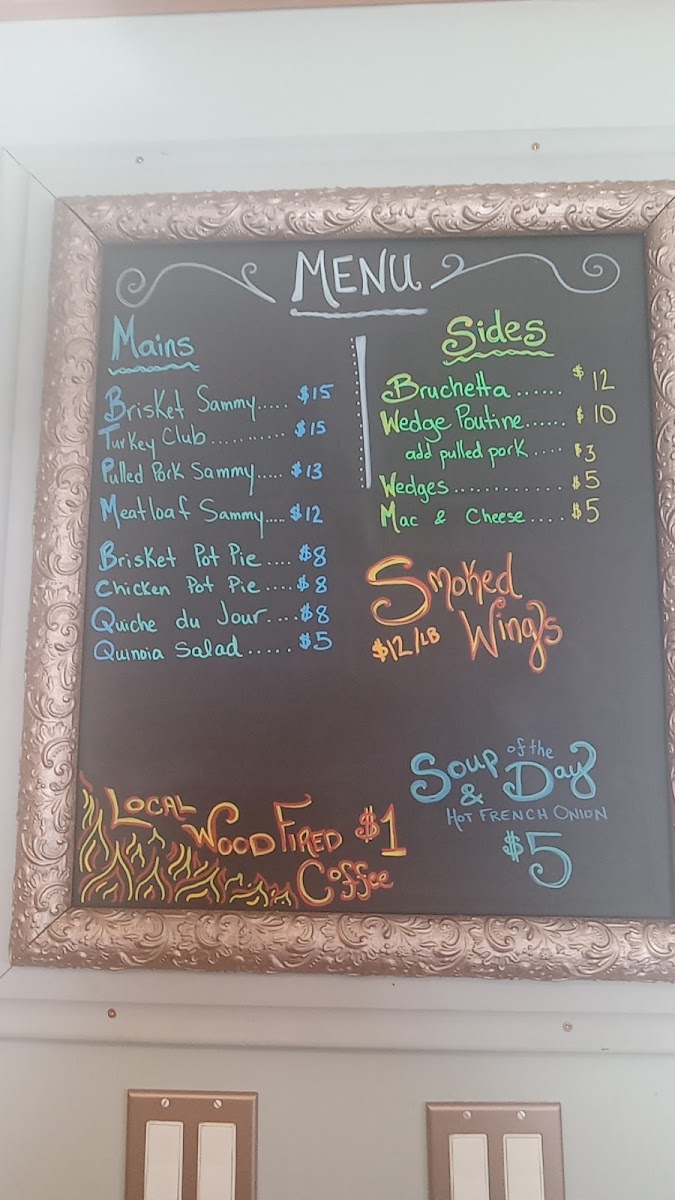 MENU
Mains
Brisket Sammy..... $15
Turkey Club........... $15
Pulled Pork Sammy..... $13
Meatloaf Sammy..... $12
Brisket Pot Pie.... $8
Chicken Pot Pie.... $8
Quiche du Jour.... $8
Quinoia Salad...... $5
Sides
Bruchetta...... $12
Wedge Poutine...... $10
add pulled pork.... $3
Wedges............ $5
Mac & Cheese.... $5
Smoked
Wings
$12/LB
Soup of the
& Day
HOT FRENCH ONION
$5
LOCAL
WOOD FIRED $1
Coffee